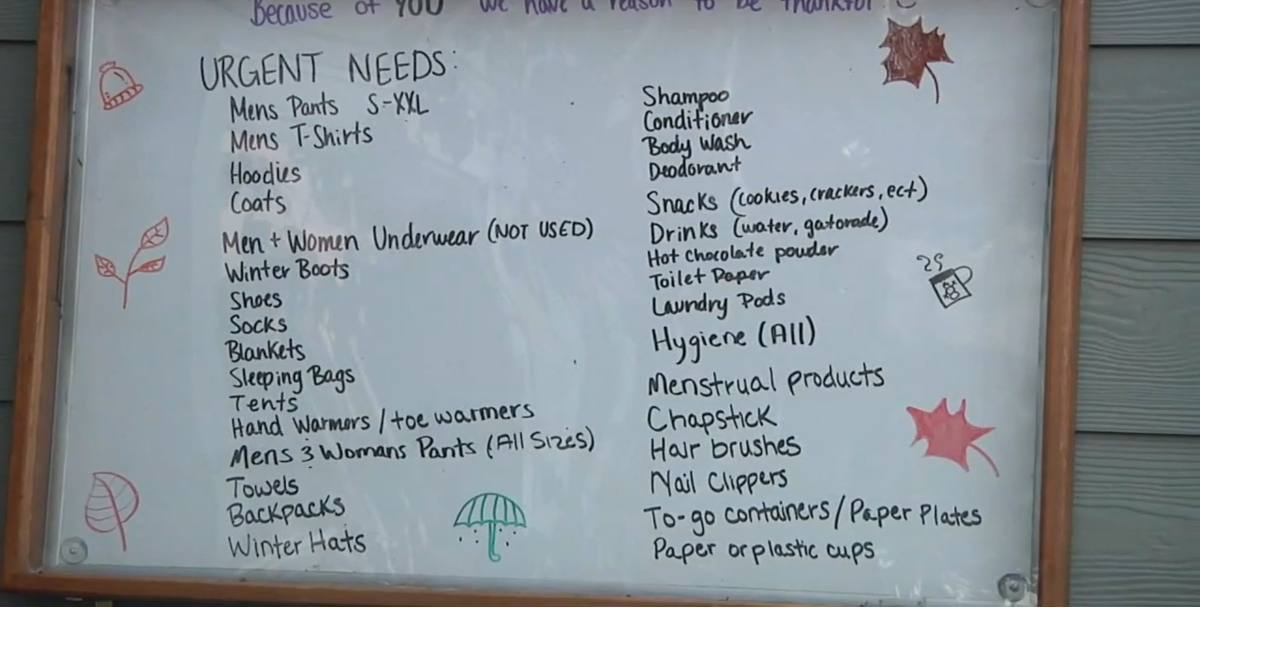 Because of YOU we have a reason to be thankful!
URGENT NEEDS:
Mens Pants S-XXL
Mens T-Shirts
Hoodies
Coats
Men + Women Underwear (NOT USED)
Winter Boots
Shoes
Socks
Blankets
Sleeping Bags
Tents
Hand Warmers / toe warmers
Mens & Womans Pants (All Sizes)
Towels
Backpacks
Winter Hats
Shampoo
Conditioner
Body Wash
Deodorant
Snacks (cookies, crackers, ect)
Drinks (water, gatorade)
Hot Chocolate powder
Toilet Paper
Laundry Pods
Hygiene (All)
Menstrual products
Chapstick
Hair brushes
Nail Clippers
To-go containers / Paper Plates
Paper or plastic cups